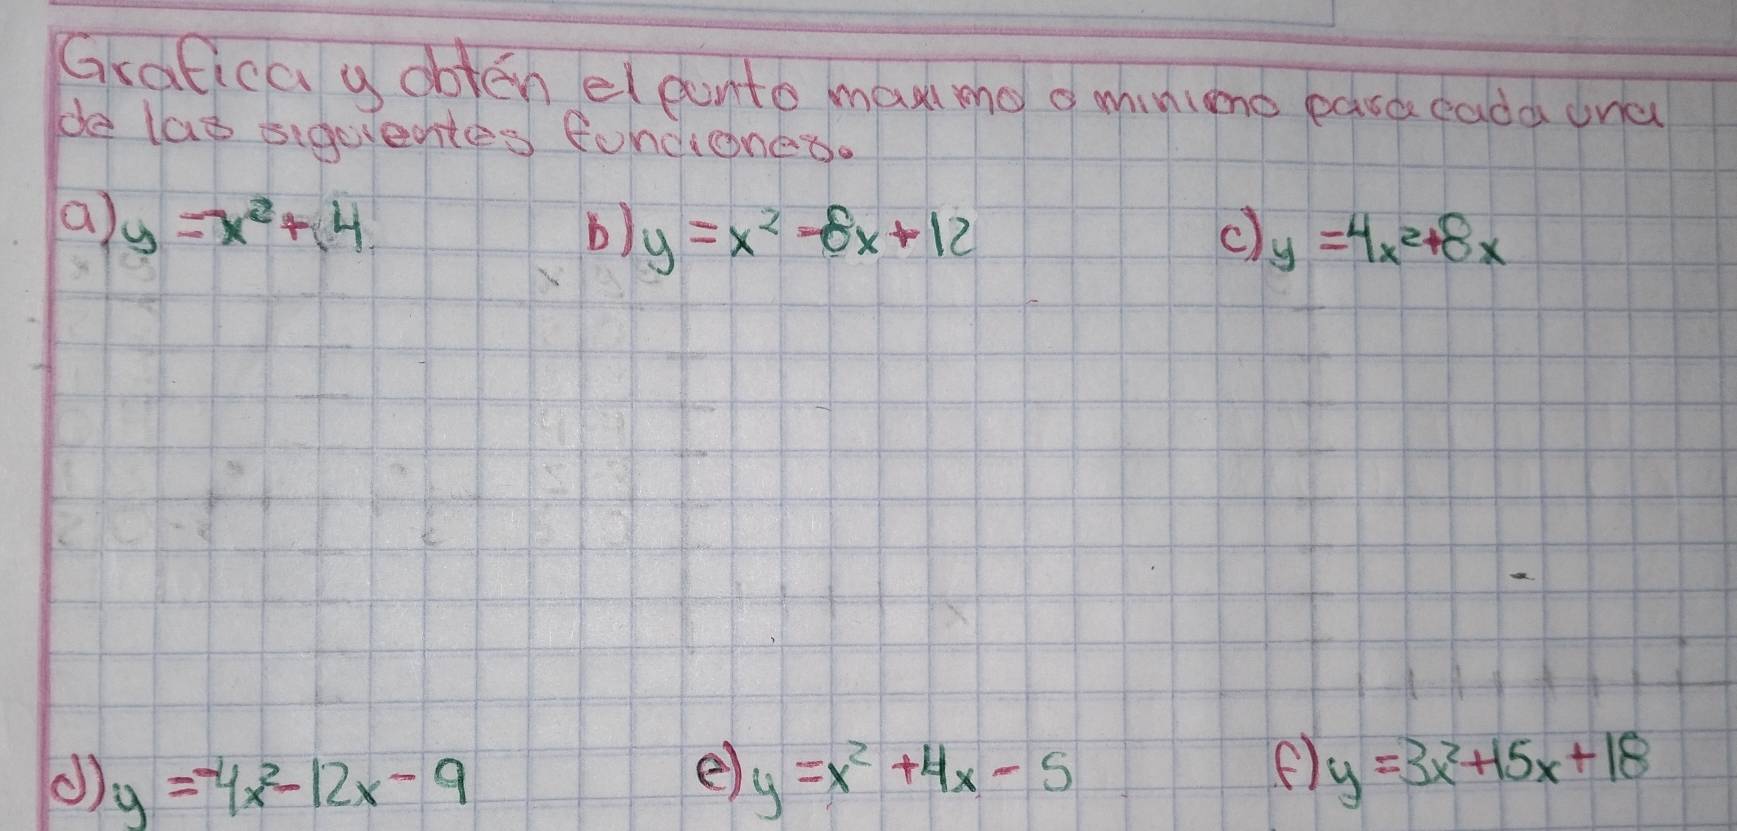 Grafica y obtén el punto maximo o minimo para cada una
de las siguientes funciones.
a) y = -x² + 4
b) y = x² - 8x + 12
c) y = 4x² + 8x
d) y = -4x² - 12x - 9
e) y = x² + 4x - 5
f) y = 3x² + 15x + 18